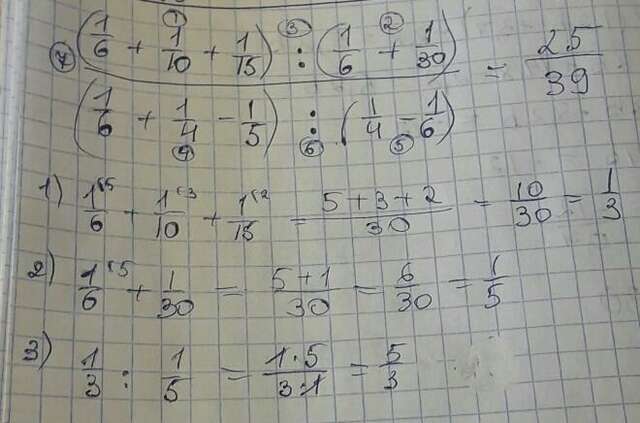 ⑦ (1/6 + 1/10 + 1/15) : (1/6 + 1/30) = 25/39
① ③ ②
(1/6 + 1/4 - 1/5) : (1/4 - 1/6)
④ ⑥ ⑤
1) 1⁽⁵/6 + 1⁽³/10 + 1⁽²/15 = 5+3+2/30 = 10/30 = 1/3
2) 1⁽⁵/6 + 1/30 = 5+1/30 = 6/30 = 1/5
3) 1/3 : 1/5 = 1·5/3·1 = 5/3